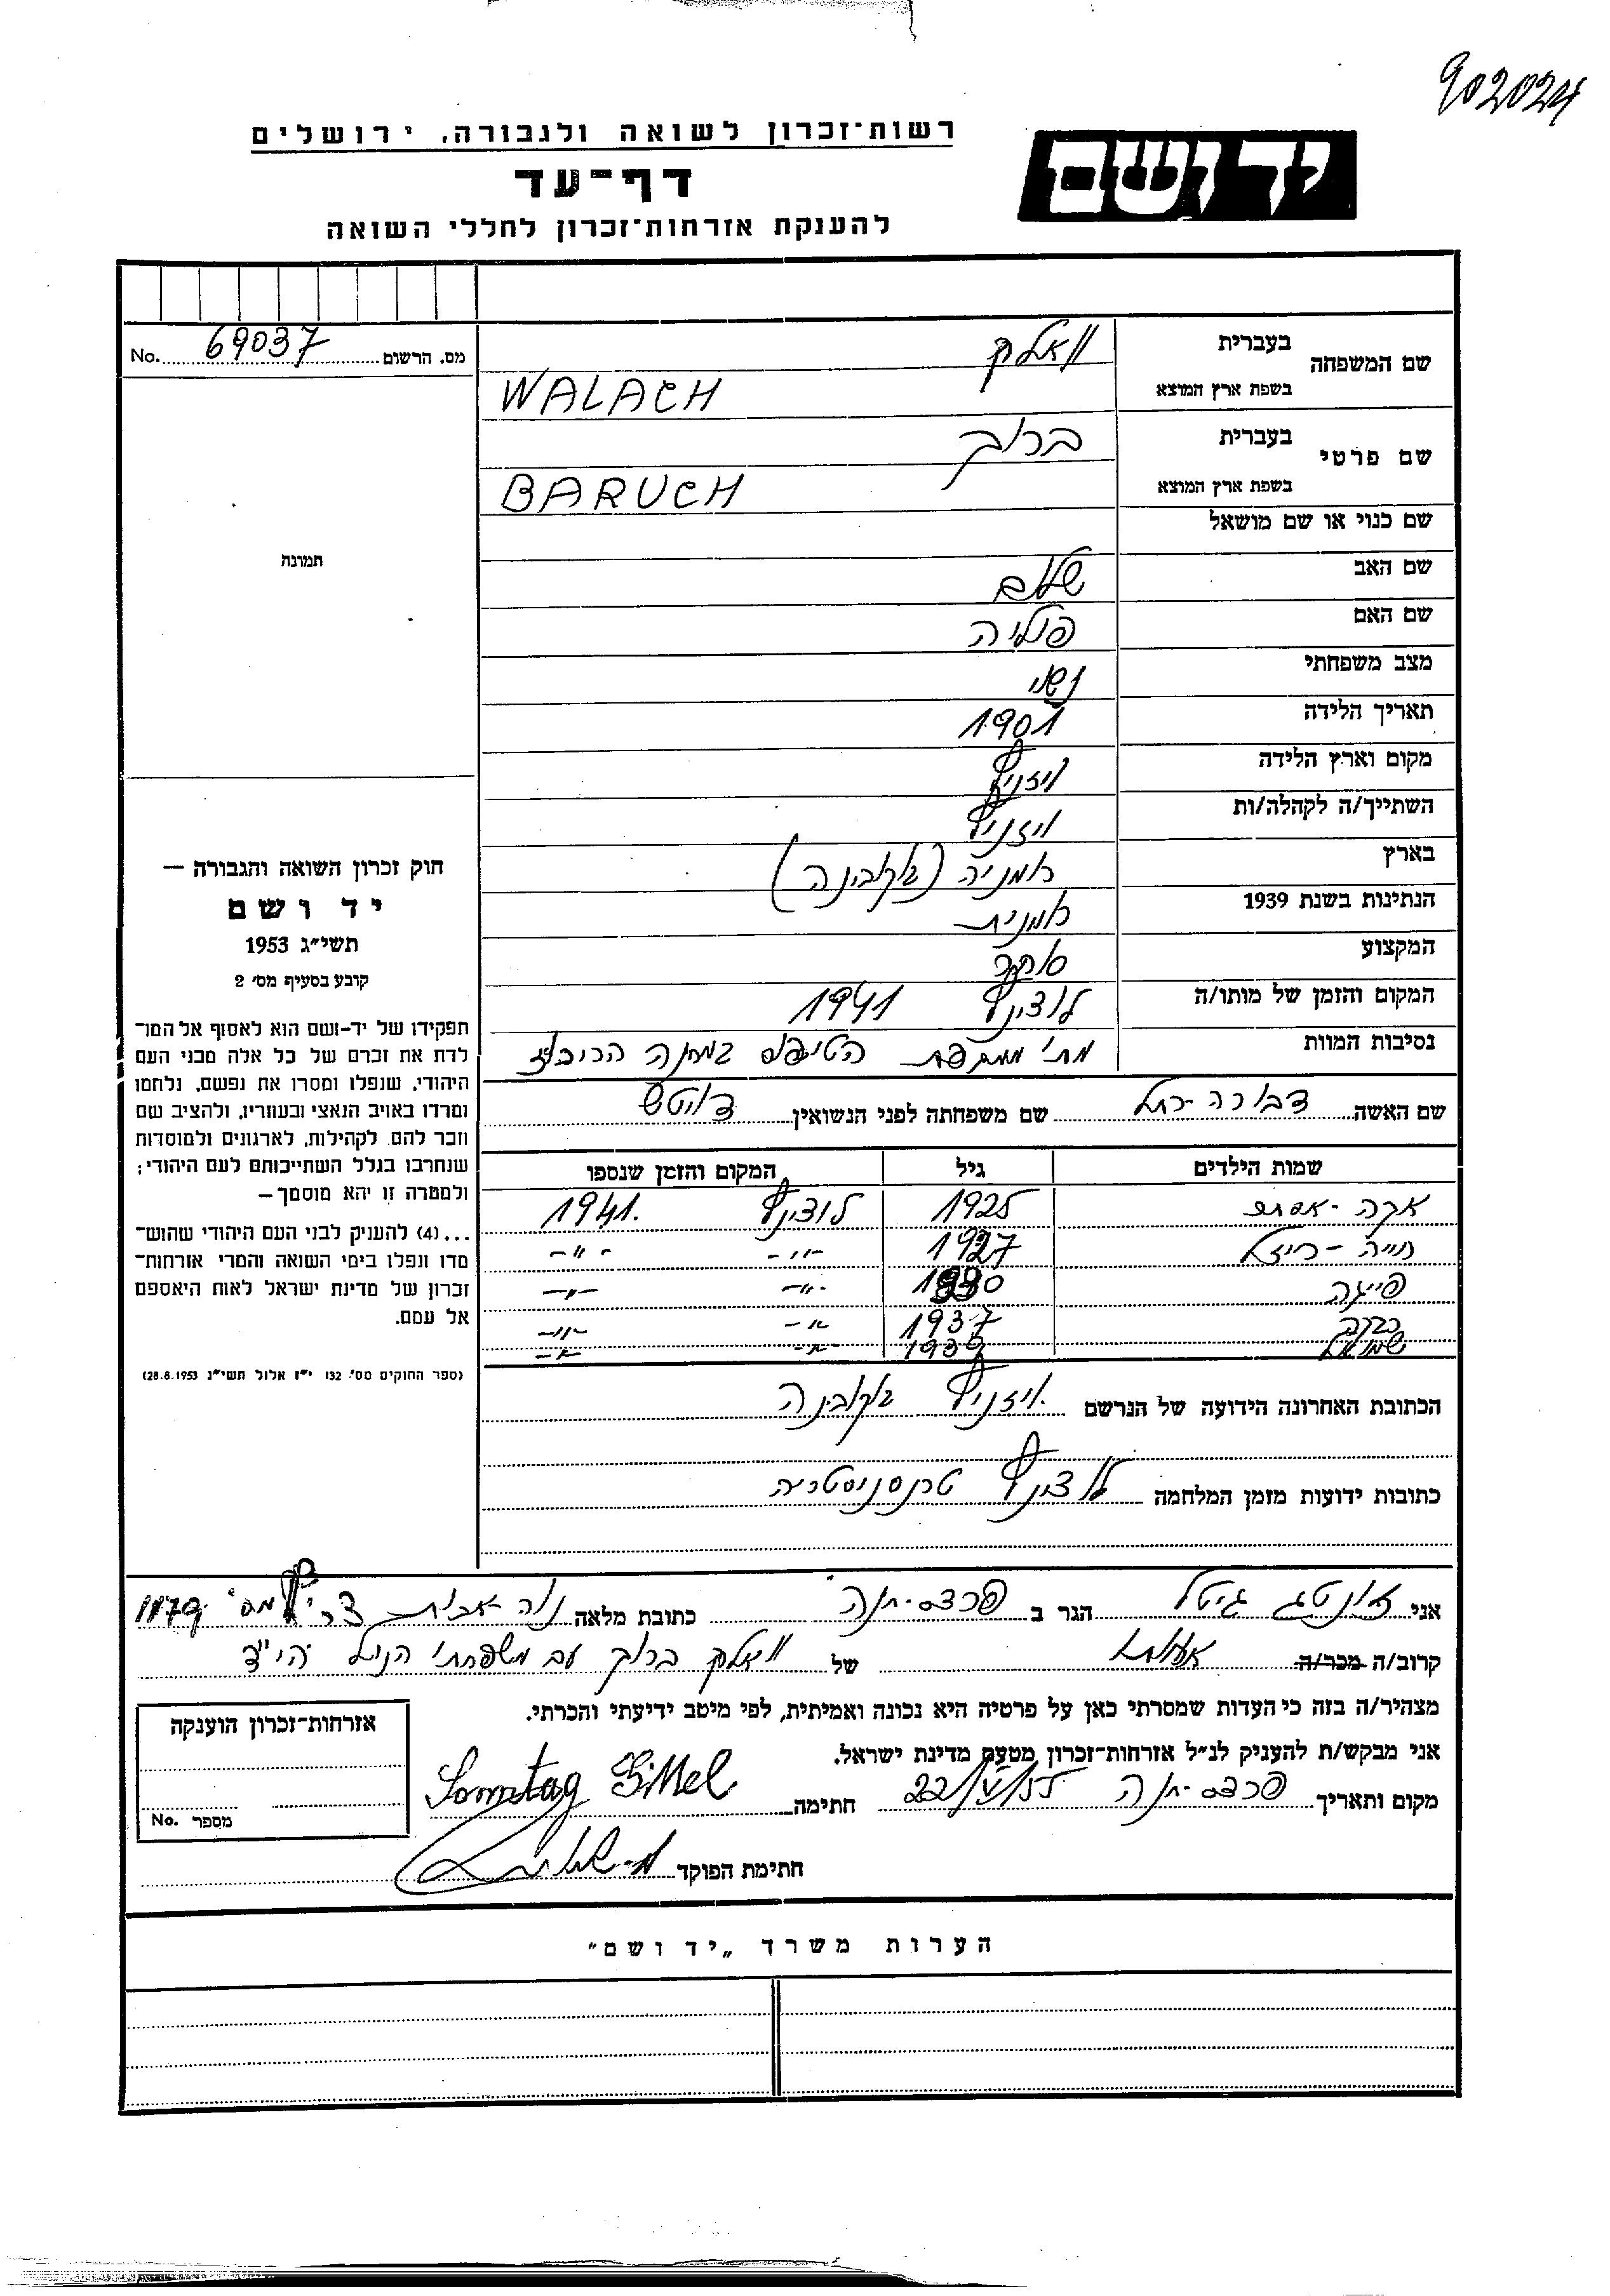 902024
רשות־זכרון לשואה ולגבורה, ירושלים
יד ושם
דף־עד
להענקת אזרחות־זכרון לחללי השואה
מס. הרשום 69037 No.
שם המשפחה בעברית וואלק
בשפת ארץ המוצא WALACH
שם פרטי בעברית ברוך
בשפת ארץ המוצא BARUCH
שם כנוי או שם מושאל
תמונה
שם האב שלום
שם האם
מצב משפחתי נשוי
תאריך הלידה 1901
מקום וארץ הלידה ויזניץ
השתייך/ה לקהלה/ות ויזניץ
בארץ רומניה (בוקובינה)
הנתינות בשנת 1939 רומנית
המקצוע סוחר
המקום והזמן של מותו/ה לודינץ 1941
נסיבות המוות הטיפוס במחנה הריכוז
שם האשה דבורה־רחל שם משפחתה לפני הנשואין
שמות הילדים גיל המקום והזמן שנספו
1925 לודינץ 1941.
חייה־רייזל 1927 -"- -"-
פייגה 1930 -"- -"-
יעקב 1937 -"- -"-
שמואל -"- -"-
הכתובת האחרונה הידועה של הנרשם ויזניץ בוקובינה
כתובות ידועות מזמן המלחמה לודינץ טרנסניסטריה
חוק זכרון השואה והגבורה —
יד ושם
תשי״ג 1953
קובע בסעיף מס׳ 2
תפקידו של יד־ושם הוא לאסוף אל המו־
לדת את זכרם של כל אלה מבני העם
היהודי, שנפלו ומסרו את נפשם, נלחמו
ומרדו באויב הנאצי ובעוזריו, ולהציב שם
וזכר להם לקהילות, לארגונים ולמוסדות
שנחרבו בגלל השתייכותם לעם היהודי;
ולמטרה זו יהא מוסמך—
...(4) להעניק לבני העם היהודי שהוש־
מדו ונפלו בימי השואה והמרי אזרחות־
זכרון של מדינת ישראל לאות היאספם
אל עמם.
(ספר החוקים מס׳ 132 י״ז אלול תשי״ג 28.8.1953)
אני זונטג גיטל הגר ב פרדס־חנה כתובת מלאה נוה־אבות צריף מס׳ 1179
קרוב/ה מכר/ה של וואלק ברוך עם משפחתו הנ״ל הי״ד
מצהיר/ה בזה כי העדות שמסרתי כאן על פרטיה היא נכונה ואמיתית, לפי מיטב ידיעתי והכרתי.
אני מבקש/ת להעניק לנ״ל אזרחות־זכרון מטעם מדינת ישראל.
מקום ותאריך פרדס־חנה 22/V/55 חתימה Sonntag Gittel
חתימת הפוקד
אזרחות־זכרון הוענקה
מספר No.
הערות משרד „יד ושם"